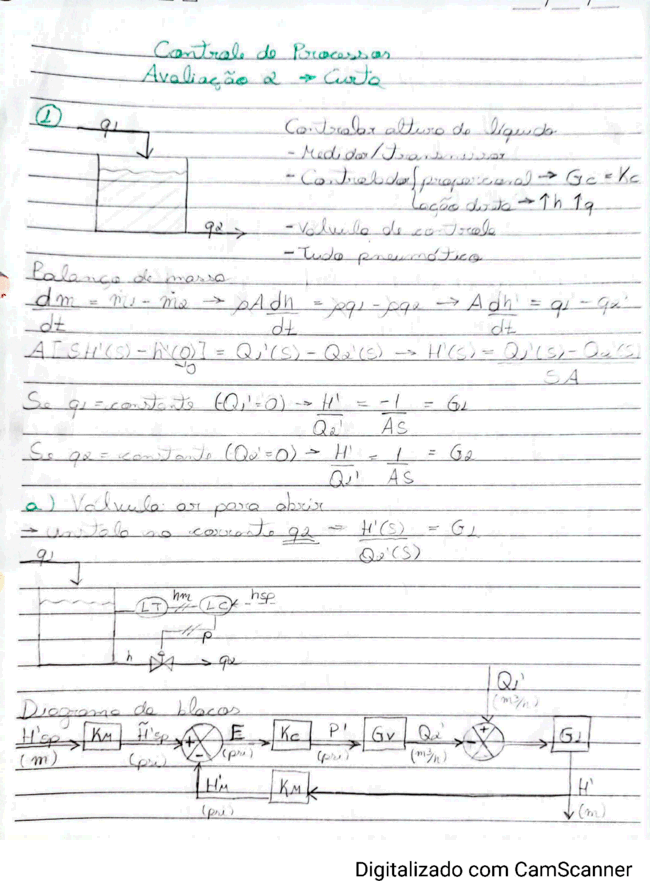 Controle de Processos
Avaliação 2 → Curta
① q1
Controlar altura do líquido
- Medidor/transmissor
- Controlador {proporcional → Gc = Kc
{ação direta → ↑h ↑q
q2
- Válvula de controle
- Tudo pneumático
Balanço de massa
dm/dt = ṁ1 - ṁ2 → ρA dh/dt = ρq1 - ρq2 → A dh'/dt = q1' - q2'
A[SH'(S) - h'(0)] = Q1'(S) - Q2'(S) → H'(S) = Q1'(S) - Q2'(S)/SA
→0
Se q1 = constante (Q1'=0) → H'/Q2' = -1/AS = G1
Se q2 = constante (Q2'=0) → H'/Q1' = 1/AS = G2
a) Válvula ar para abrir
→ na corrente q2 = H'(S)/Q2'(S) = G1
q1
LT hm LC hsp
p
h q2
Diagrama de blocos
Q1'
(m³/h)
H'sp KM H̃'sp + - E Kc P' Gv Q2' - + G1
(m) (psi) (psi) (psi) (m³/h)
H'M KM H'
(psi) (m)
Digitalizado com CamScanner